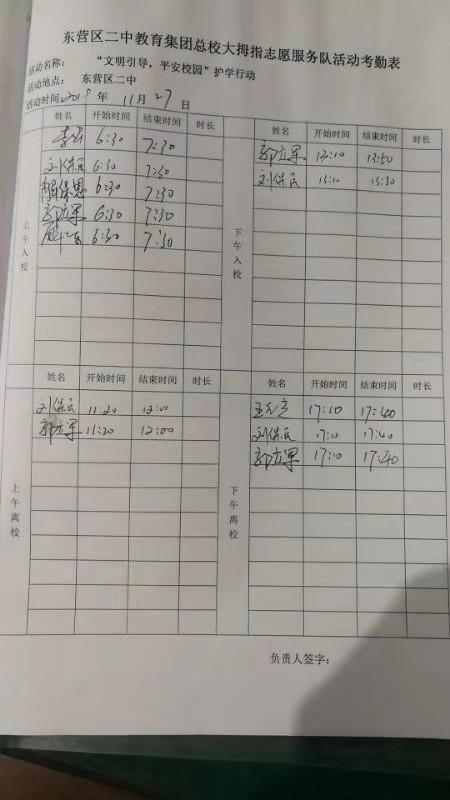 东营区二中教育集团总校大拇指志愿服务队活动考勤表
活动名称： “文明引导，平安校园”护学行动
活动地点： 东营区二中
活动时间:2019 年 11 月 27 日
上午入校
姓名 开始时间 结束时间 时长
6:30 7:30
刘保民 6:30 7:30
6:30 7:30
郭立军 6:30 7:30
6:30 7:30
下午入校
姓名 开始时间 结束时间 时长
郭立军 13:10 13:50
刘保民 13:10 13:50
上午离校
姓名 开始时间 结束时间 时长
刘保民 11:20 12:00
郭立军 11:20 12:00
下午离校
姓名 开始时间 结束时间 时长
17:10 17:40
刘保民 17:10 17:40
郭立军 17:10 17:40
负责人签字：